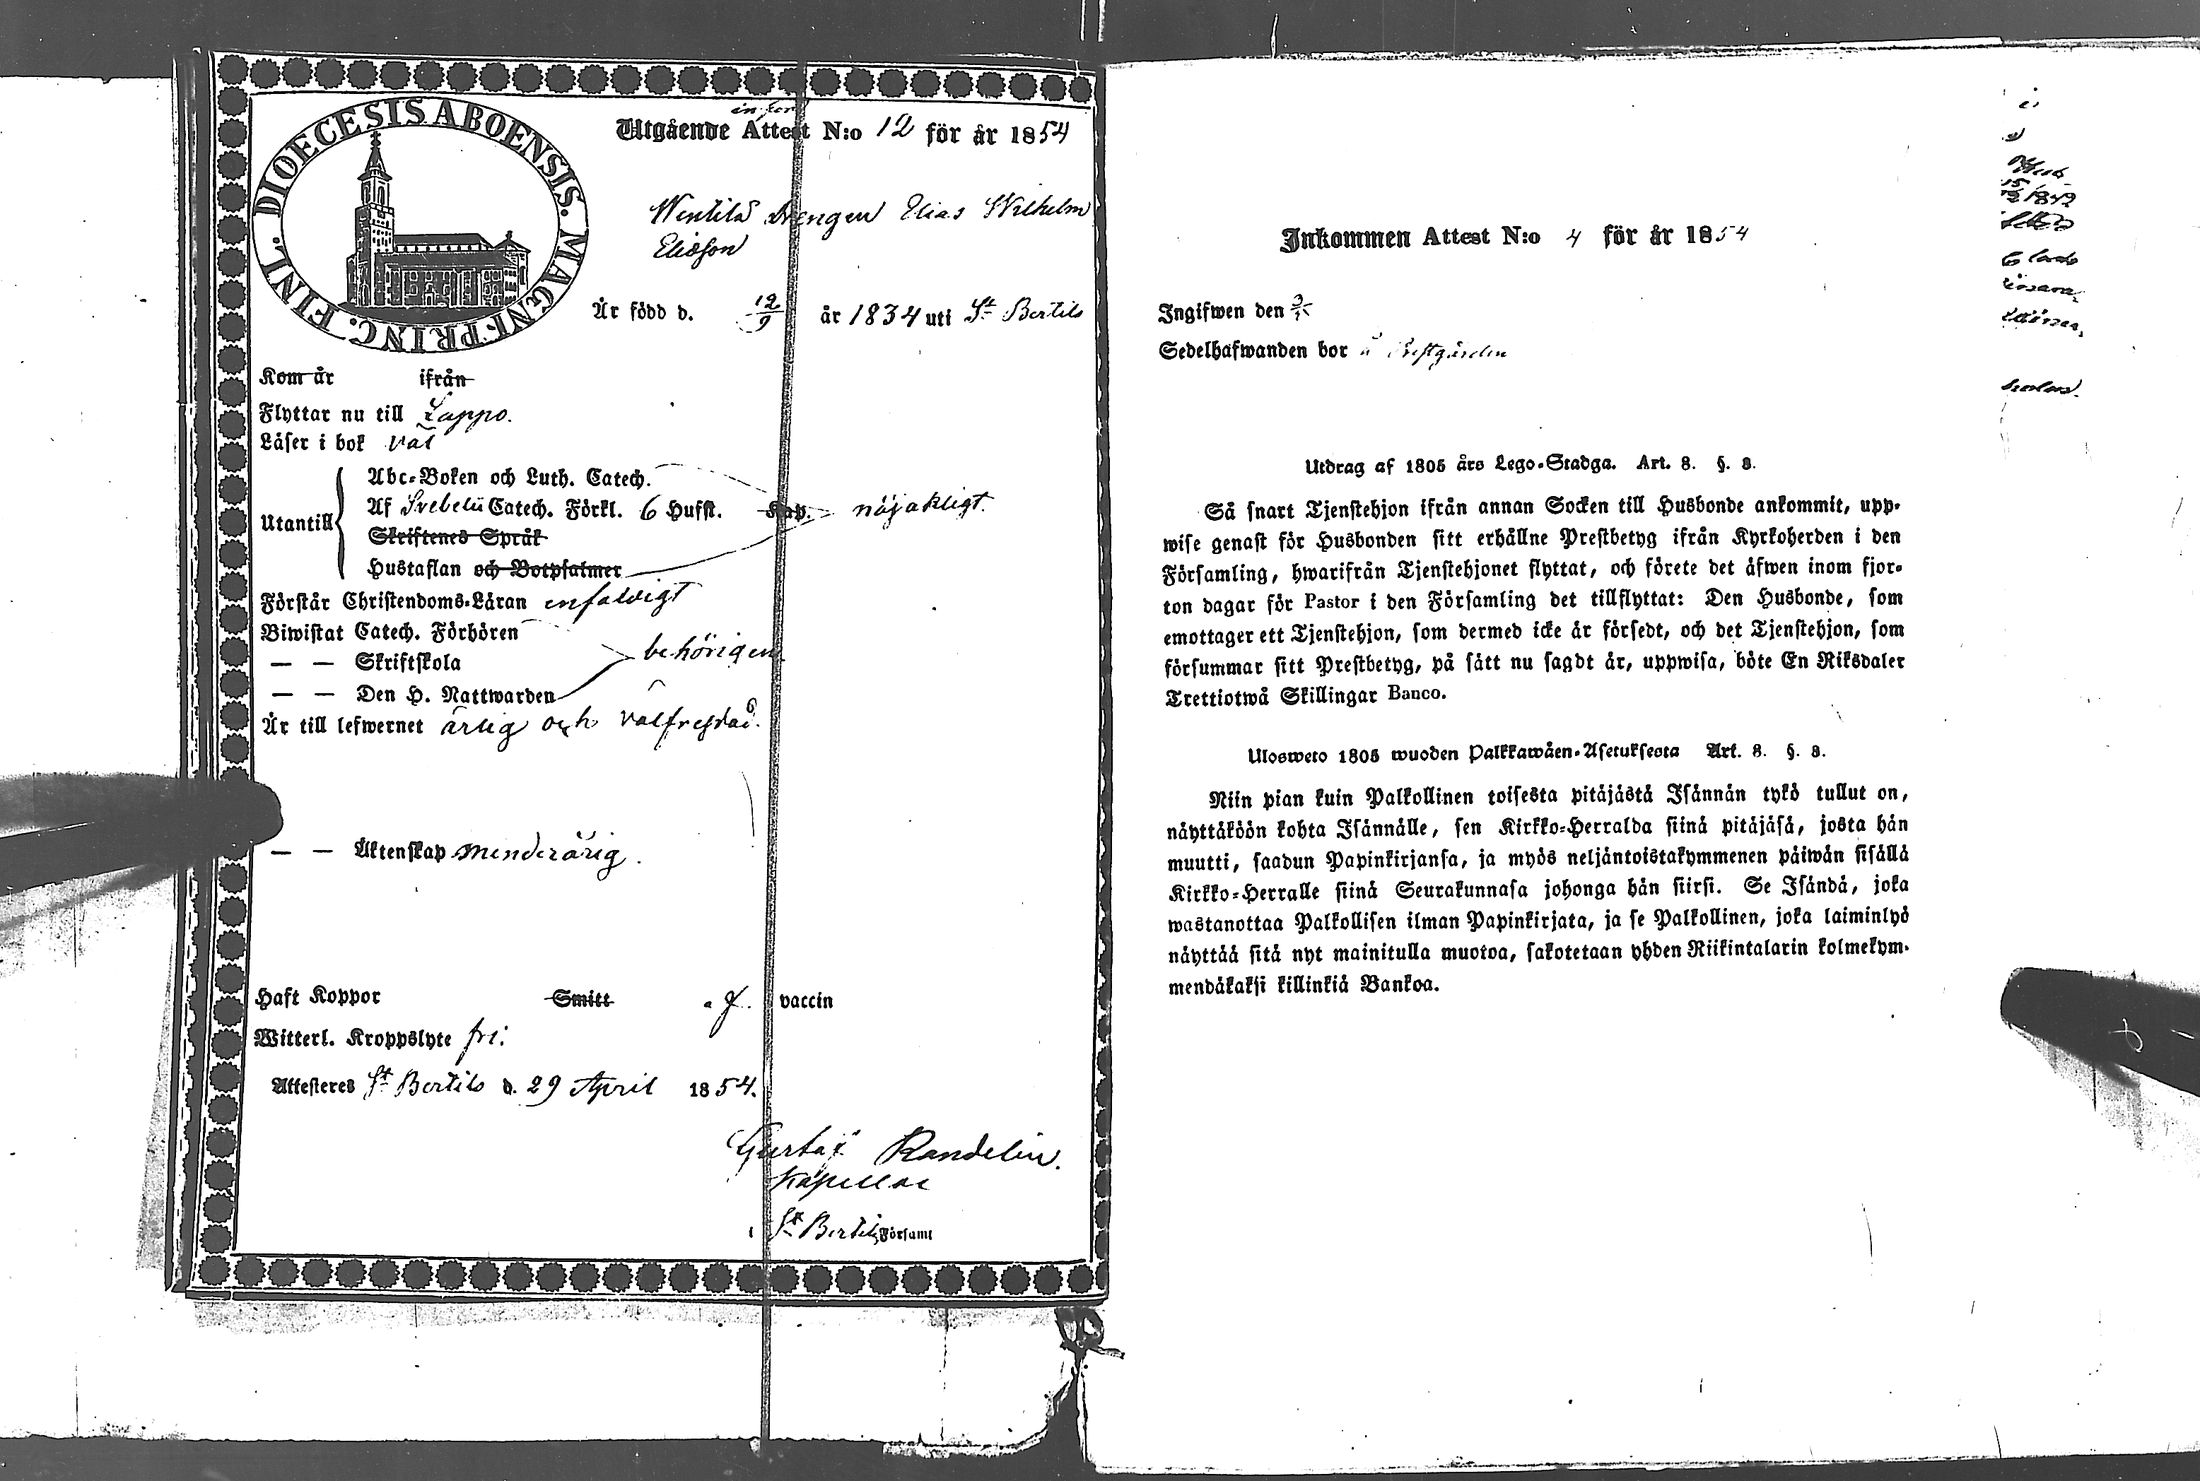 DIOECESIS ABOENSIS. MAGNI PRINC. FINL.
Utgående Attest N:o 12 för år 1854
Drengen Elias Wilhelm
Eliasson
Är född d. 12/9 år 1834 uti St Bertils
Kom år ifrån
Flyttar nu till Lappo.
Läser i bok väl
Abc-Boken och Luth. Catech.
Utantill Af Svebelii Catech. Förkl. 6 Hufst. Kap. nöjaktligt.
Skriftenes Språk
Hustaflan och Botpsalmer
Förstår Christendoms-Läran enfaldigt
Biwistat Catech. Förhören
— — Skriftskola behörigen
— — Den H. Nattwarden
Är till lefwernet ärlig och välfrejdad.
— — Äktenskap minderårig.
Haft Koppor Smitt vaccin
Witterl. Kroppslyte fri.
Attesteres St Bertils d. 29 April 1854.
Gustaf Randelin.
Kapellan
i St Bertils Församl
Inkommen Attest N:o 4 för år 1854
Ingifwen den
Sedelhafwanden bor å Prestgården
Utdrag af 1805 års Lego-Stadga. Art. 8. §. 8.
Så snart Tjenstehjon ifrån annan Socken till Husbonde ankommit, upp-
wise genast för Husbonden sitt erhållne Prestbetyg ifrån Kyrkoherden i den
Församling, hwarifrån Tjenstehjonet flyttat, och förete det äfwen inom fjor-
ton dagar för Pastor i den Församling det tillflyttat: Den Husbonde, som
emottager ett Tjenstehjon, som dermed icke är försedt, och det Tjenstehjon, som
försummar sitt Prestbetyg, på sätt nu sagdt är, uppwisa, böte En Riksdaler
Trettiotwå Skillingar Banco.
Ulosweto 1805 wuoden Palkkawäen-Asetuksesta Art. 8. §. 8.
Niin pian kuin Palkollinen toisesta pitäjästä Isännän tykö tullut on,
näyttäköön kohta Isännälle, sen Kirkko-Herralda siinä pitäjäsä, josta hän
muutti, saadun Papinkirjansa, ja myös neljäntoistakymmenen päiwän sisällä
Kirkko-Herralle siinä Seurakunnasa johonga hän siirsi. Se Isändä, joka
wastanottaa Palkollisen ilman Papinkirjata, ja se Palkollinen, joka laiminlyö
näyttää sitä nyt mainitulla muotoa, sakotetaan yhden Riikintalarin kolmekym-
mendäkaksi killinkiä Bankoa.